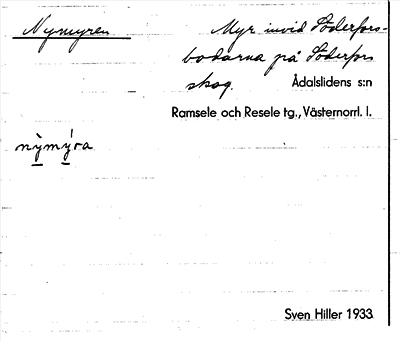 Nymyren
Myr invid Söderfors-
bodarna på Söderfors
skog. Ådalslidens s:n
Ramsele och Resele tg., Västernorrl. l.
nỳmýra
Sven Hiller 1933